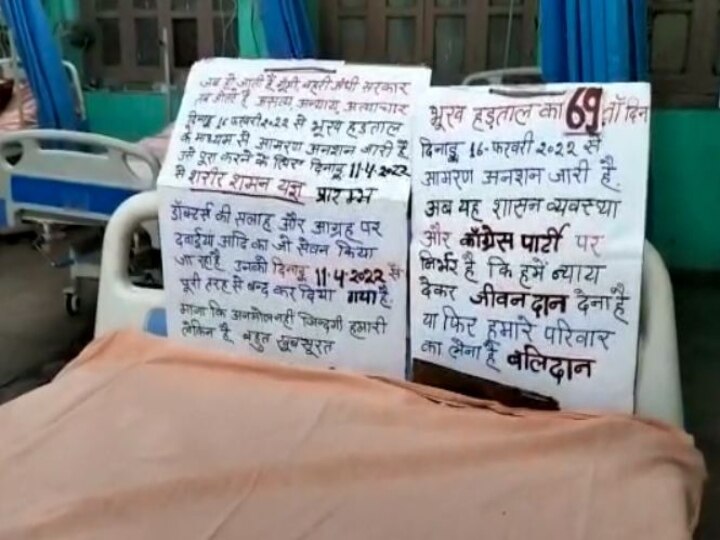 जब हो जाती है गूंगी बहरी अंधी सरकार
तब होता है असत्य, अन्याय, अत्याचार
दिनाङ्क 16 फरवरी 2022 से भूख हड़ताल
के माध्यम से आमरण अनशन जारी है
उसे पूरा करने के लिए दिनाङ्क 11-4-2022
से शरीर शमन यज्ञ प्रारम्भ
डॉक्टर्स की सलाह और आग्रह पर
दवाईयां आदि का जो सेवन किया
जा रहा है उनको दिनाङ्क 11-4-2022 से
पूरी तरह से बन्द कर दिया गया है.
माना कि अनमोल नहीं जिन्दगी हमारी
लेकिन है बहुत खूबसूरत
भूख हड़ताल का 69 वाँ दिन
दिनाङ्क 16-फरवरी 2022 से
आमरण अनशन जारी है.
अब यह शासन व्यवस्था
और काँग्रेस पार्टी पर
निर्भर है कि हमें न्याय
देकर जीवन दान देना है
या फिर हमारे परिवार
का लेना है बलिदान